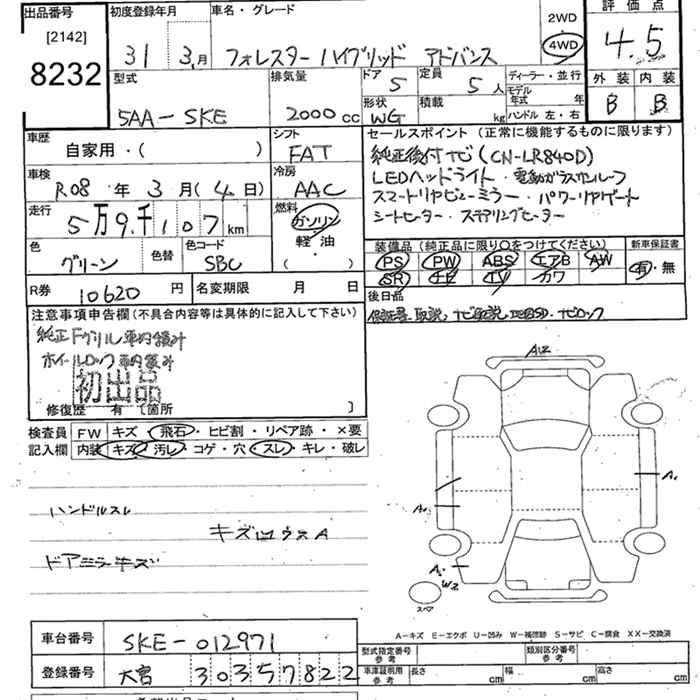 出品番号 初度登録年月 車名・グレード 2WD 評価点
[2142] 31 3月 フォレスター ハイブリッド アドバンス 4WD 4.5
8232 型式 排気量 ドア 5 定員 5人 ディーラー・並行 外装 内装
5AA-SKE 2000cc 形状 WG 積載 kg モデル年式 年 ハンドル 左・右 B B
車歴 シフト セールスポイント(正常に機能するものに限ります)
自家用・( ) FAT 純正後付ナビ(CN-LR840D)
車検 冷房 LEDヘッドライト・電動ガラスサンルーフ
R08年3月(4日) AAC スマートリヤビューミラー・パワーリヤゲート
走行 燃料 シートヒーター・ステアリングヒーター
5万9千107km ガソリン・軽油( )
色 色替 色コード 装備品(純正品に限り○をつけてください) 新車保証書
グリーン SBC PS PW ABS エアB AW 有・無
SR ナビ TV カワ
R券 10620円 名変期限 月 日 後日品
保証書、取説、ナビ取説、地図SD、ナビロック
注意事項申告欄(不具合内容等は具体的に記入して下さい)
純正Fグリル車内積み
ホイールロック車内積み
初出品
修復歴 有 〔箇所 〕
検査員 FW キズ・飛石・ヒビ割・リペア跡・×要
記入欄 内装 キズ・汚レ・コゲ・穴・スレ・キレ・破レ
ハンドルスレ
キズ
ドアミラーキズ
A12
A1
A1
A2
W2
スペア
A-キズ E-エクボ U-凹み W-補修跡 S-サビ C-腐食 XX-交換済
車台番号 SKE-012971 型式指定番号 参考 類別区分番号 参考
登録番号 大宮 303 57822 車庫証明用 参考 長さ cm 幅 cm 高さ cm